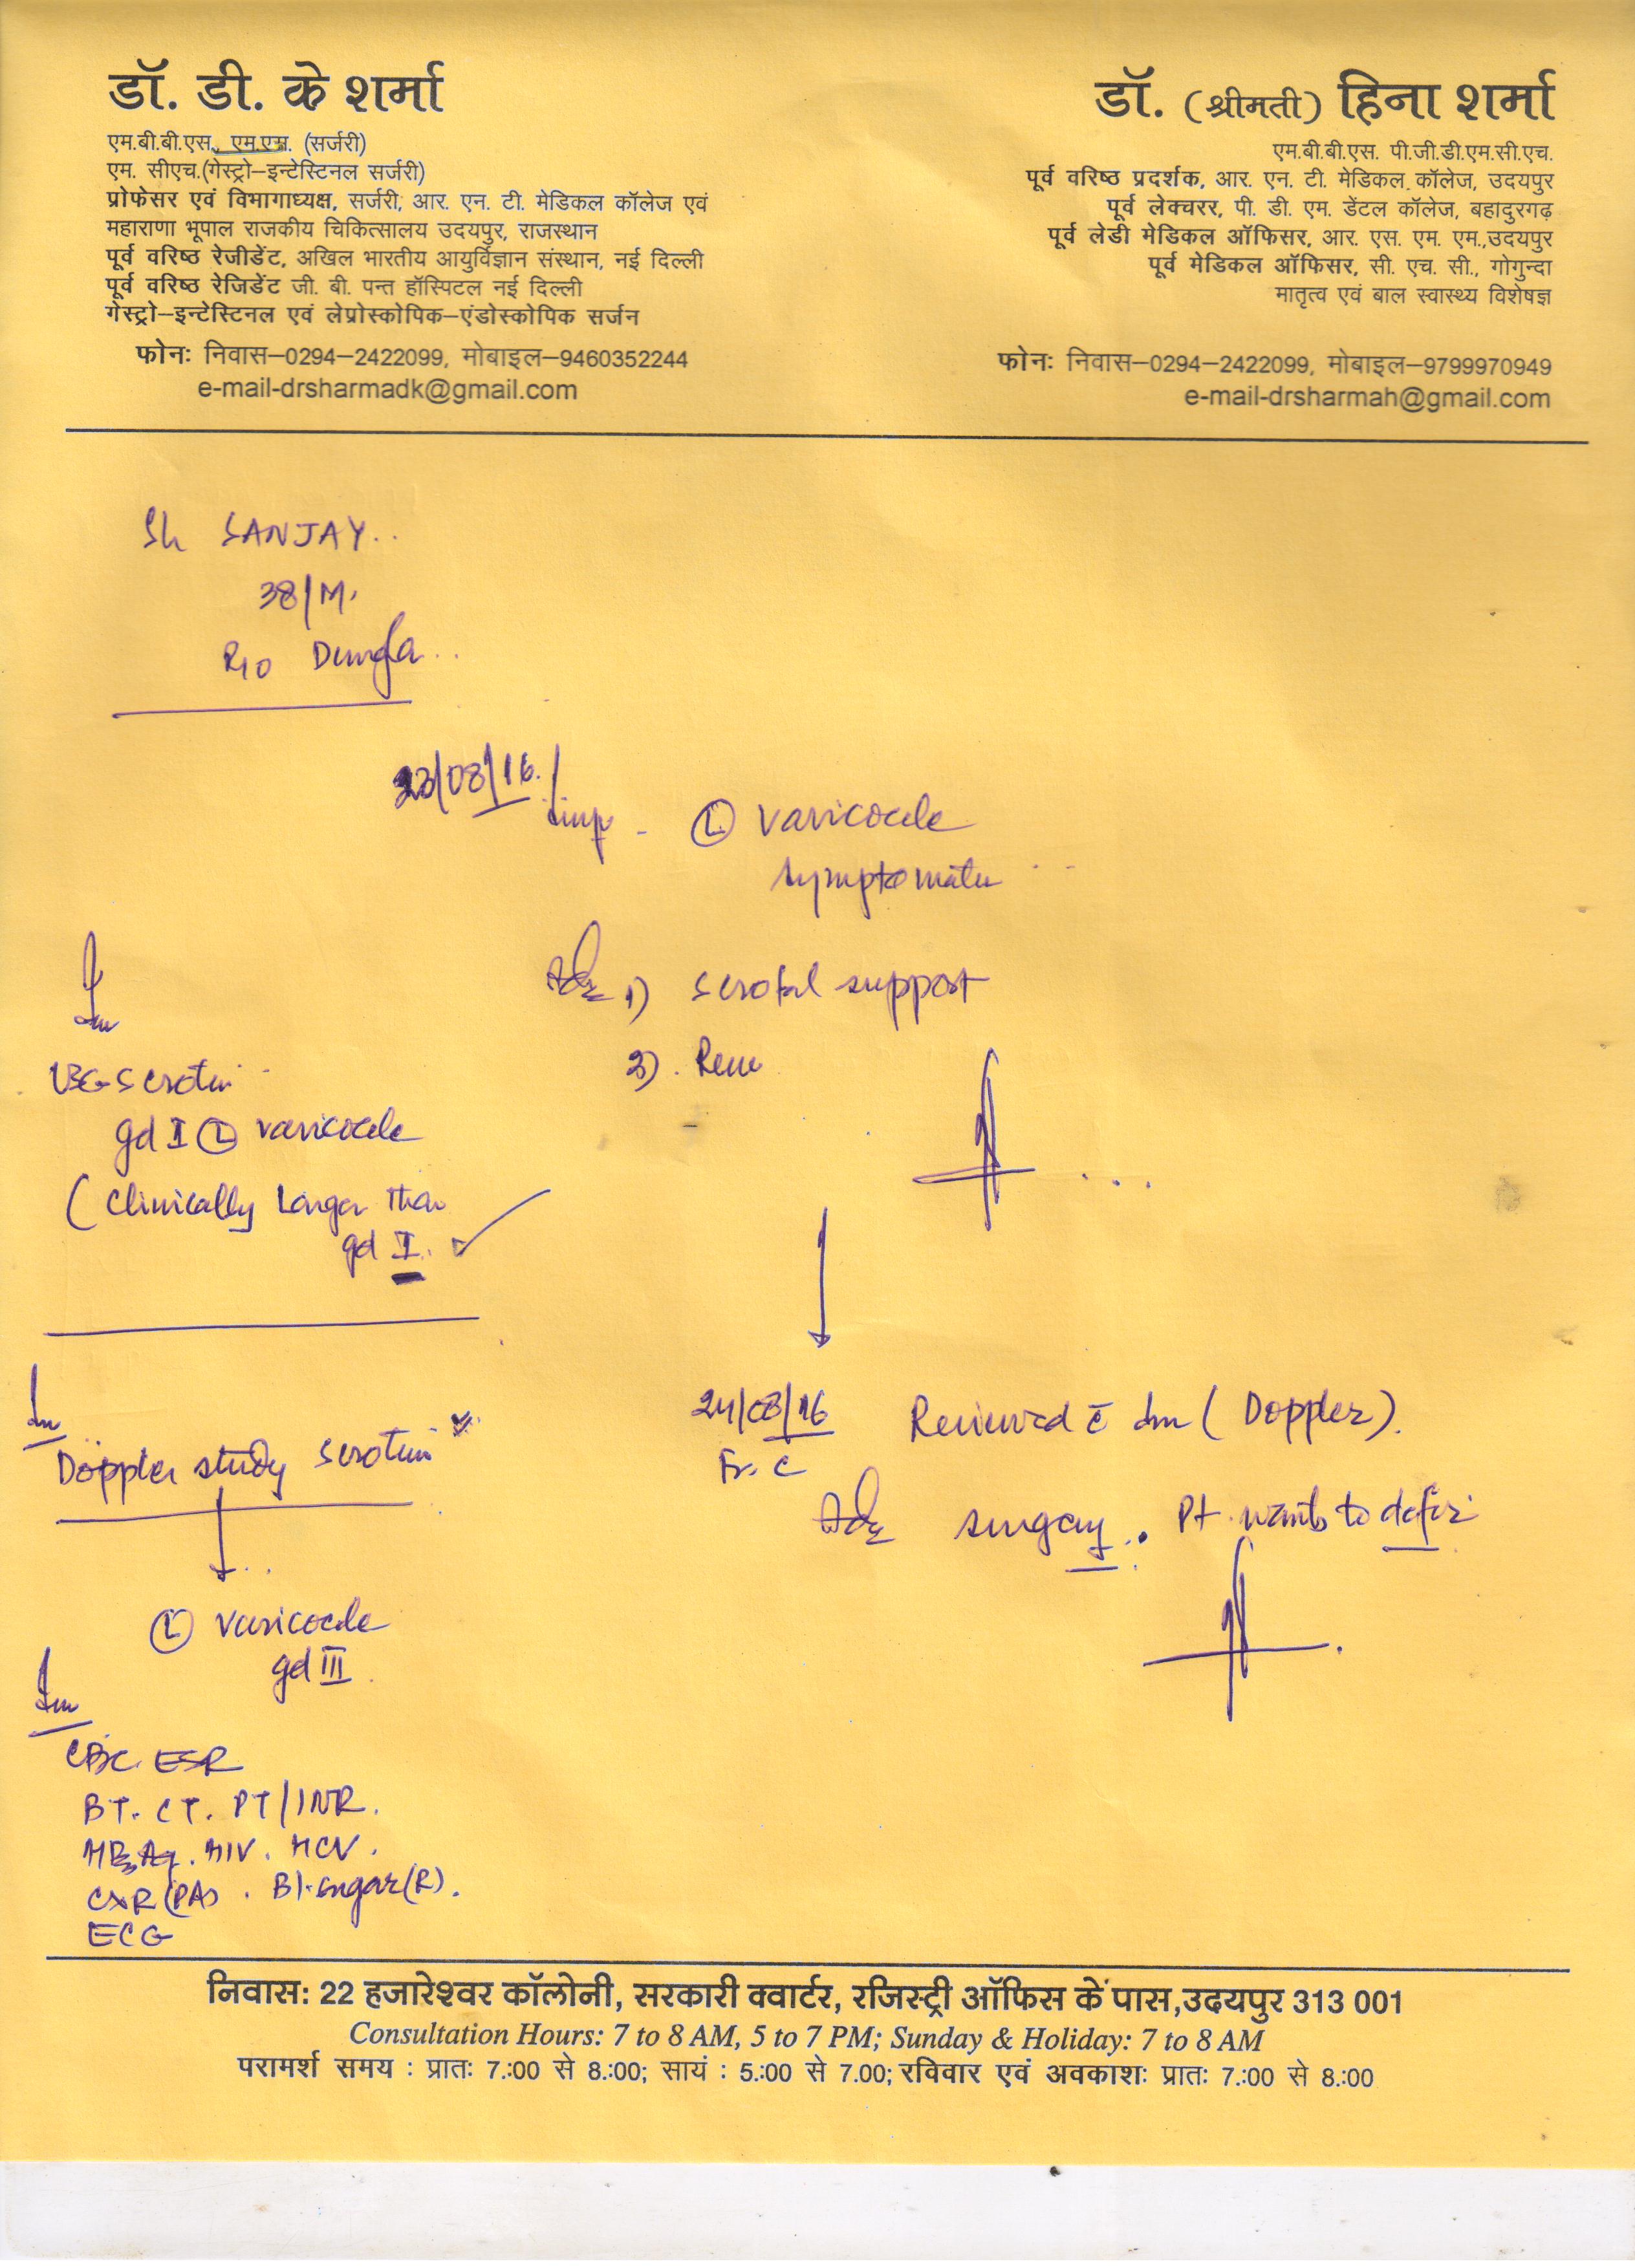 डॉ. डी. के शर्मा
एम.बी.बी.एस., एम.एस. (सर्जरी)
एम. सीएच.(गेस्ट्रो–इन्टेस्टिनल सर्जरी)
प्रोफेसर एवं विभागाध्यक्ष, सर्जरी, आर. एन. टी. मेडिकल कॉलेज एवं
महाराणा भूपाल राजकीय चिकित्सालय उदयपुर, राजस्थान
पूर्व वरिष्ठ रेजीडेंट, अखिल भारतीय आयुर्विज्ञान संस्थान, नई दिल्ली
पूर्व वरिष्ठ रेजिडेंट जी. बी. पन्त हॉस्पिटल नई दिल्ली
गेस्ट्रो–इन्टेस्टिनल एवं लेप्रोस्कोपिक–एंडोस्कोपिक सर्जन
फोनः निवास–0294–2422099, मोबाइल–9460352244
e-mail-drsharmadk@gmail.com
डॉ. (श्रीमती) हिना शर्मा
एम.बी.बी.एस. पी.जी.डी.एम.सी.एच.
पूर्व वरिष्ठ प्रदर्शक, आर. एन. टी. मेडिकल कॉलेज, उदयपुर
पूर्व लेक्चरर, पी. डी. एम. डेंटल कॉलेज, बहादुरगढ़
पूर्व लेडी मेडिकल ऑफिसर, आर. एस. एम. एम.,उदयपुर
पूर्व मेडिकल ऑफिसर, सी. एच. सी., गोगुन्दा
मातृत्व एवं बाल स्वास्थ्य विशेषज्ञ
फोनः निवास–0294–2422099, मोबाइल–9799970949
e-mail-drsharmah@gmail.com
Sh SANJAY..
38/M.
R/o Dungla..
23/08/16.
Imp - (L) varicocele
symptomatic
Adv 1) scrotal support
2). Rev
Inv
USG scrotum
gd I (L) varicocele
(Clinically Larger than
gd I.
24/08/16 Reviewed c̄ Inv (Doppler).
Adv surgery.. Pt. wants to defer
Inv
Doppler study scrotum
(L) varicocele
gd III.
Inv
CBC. ESR
BT. CT. PT/INR.
HBsAg. HIV. HCV.
CXR (PA) . Bl. sugar (R).
ECG
निवास: 22 हजारेश्वर कॉलोनी, सरकारी क्वार्टर, रजिस्ट्री ऑफिस कें पास,उदयपुर 313 001
Consultation Hours: 7 to 8 AM, 5 to 7 PM; Sunday & Holiday: 7 to 8 AM
परामर्श समय : प्रातः 7.:00 से 8.:00; सायं : 5.:00 से 7.00; रविवार एवं अवकाशः प्रातः 7.:00 से 8.:00